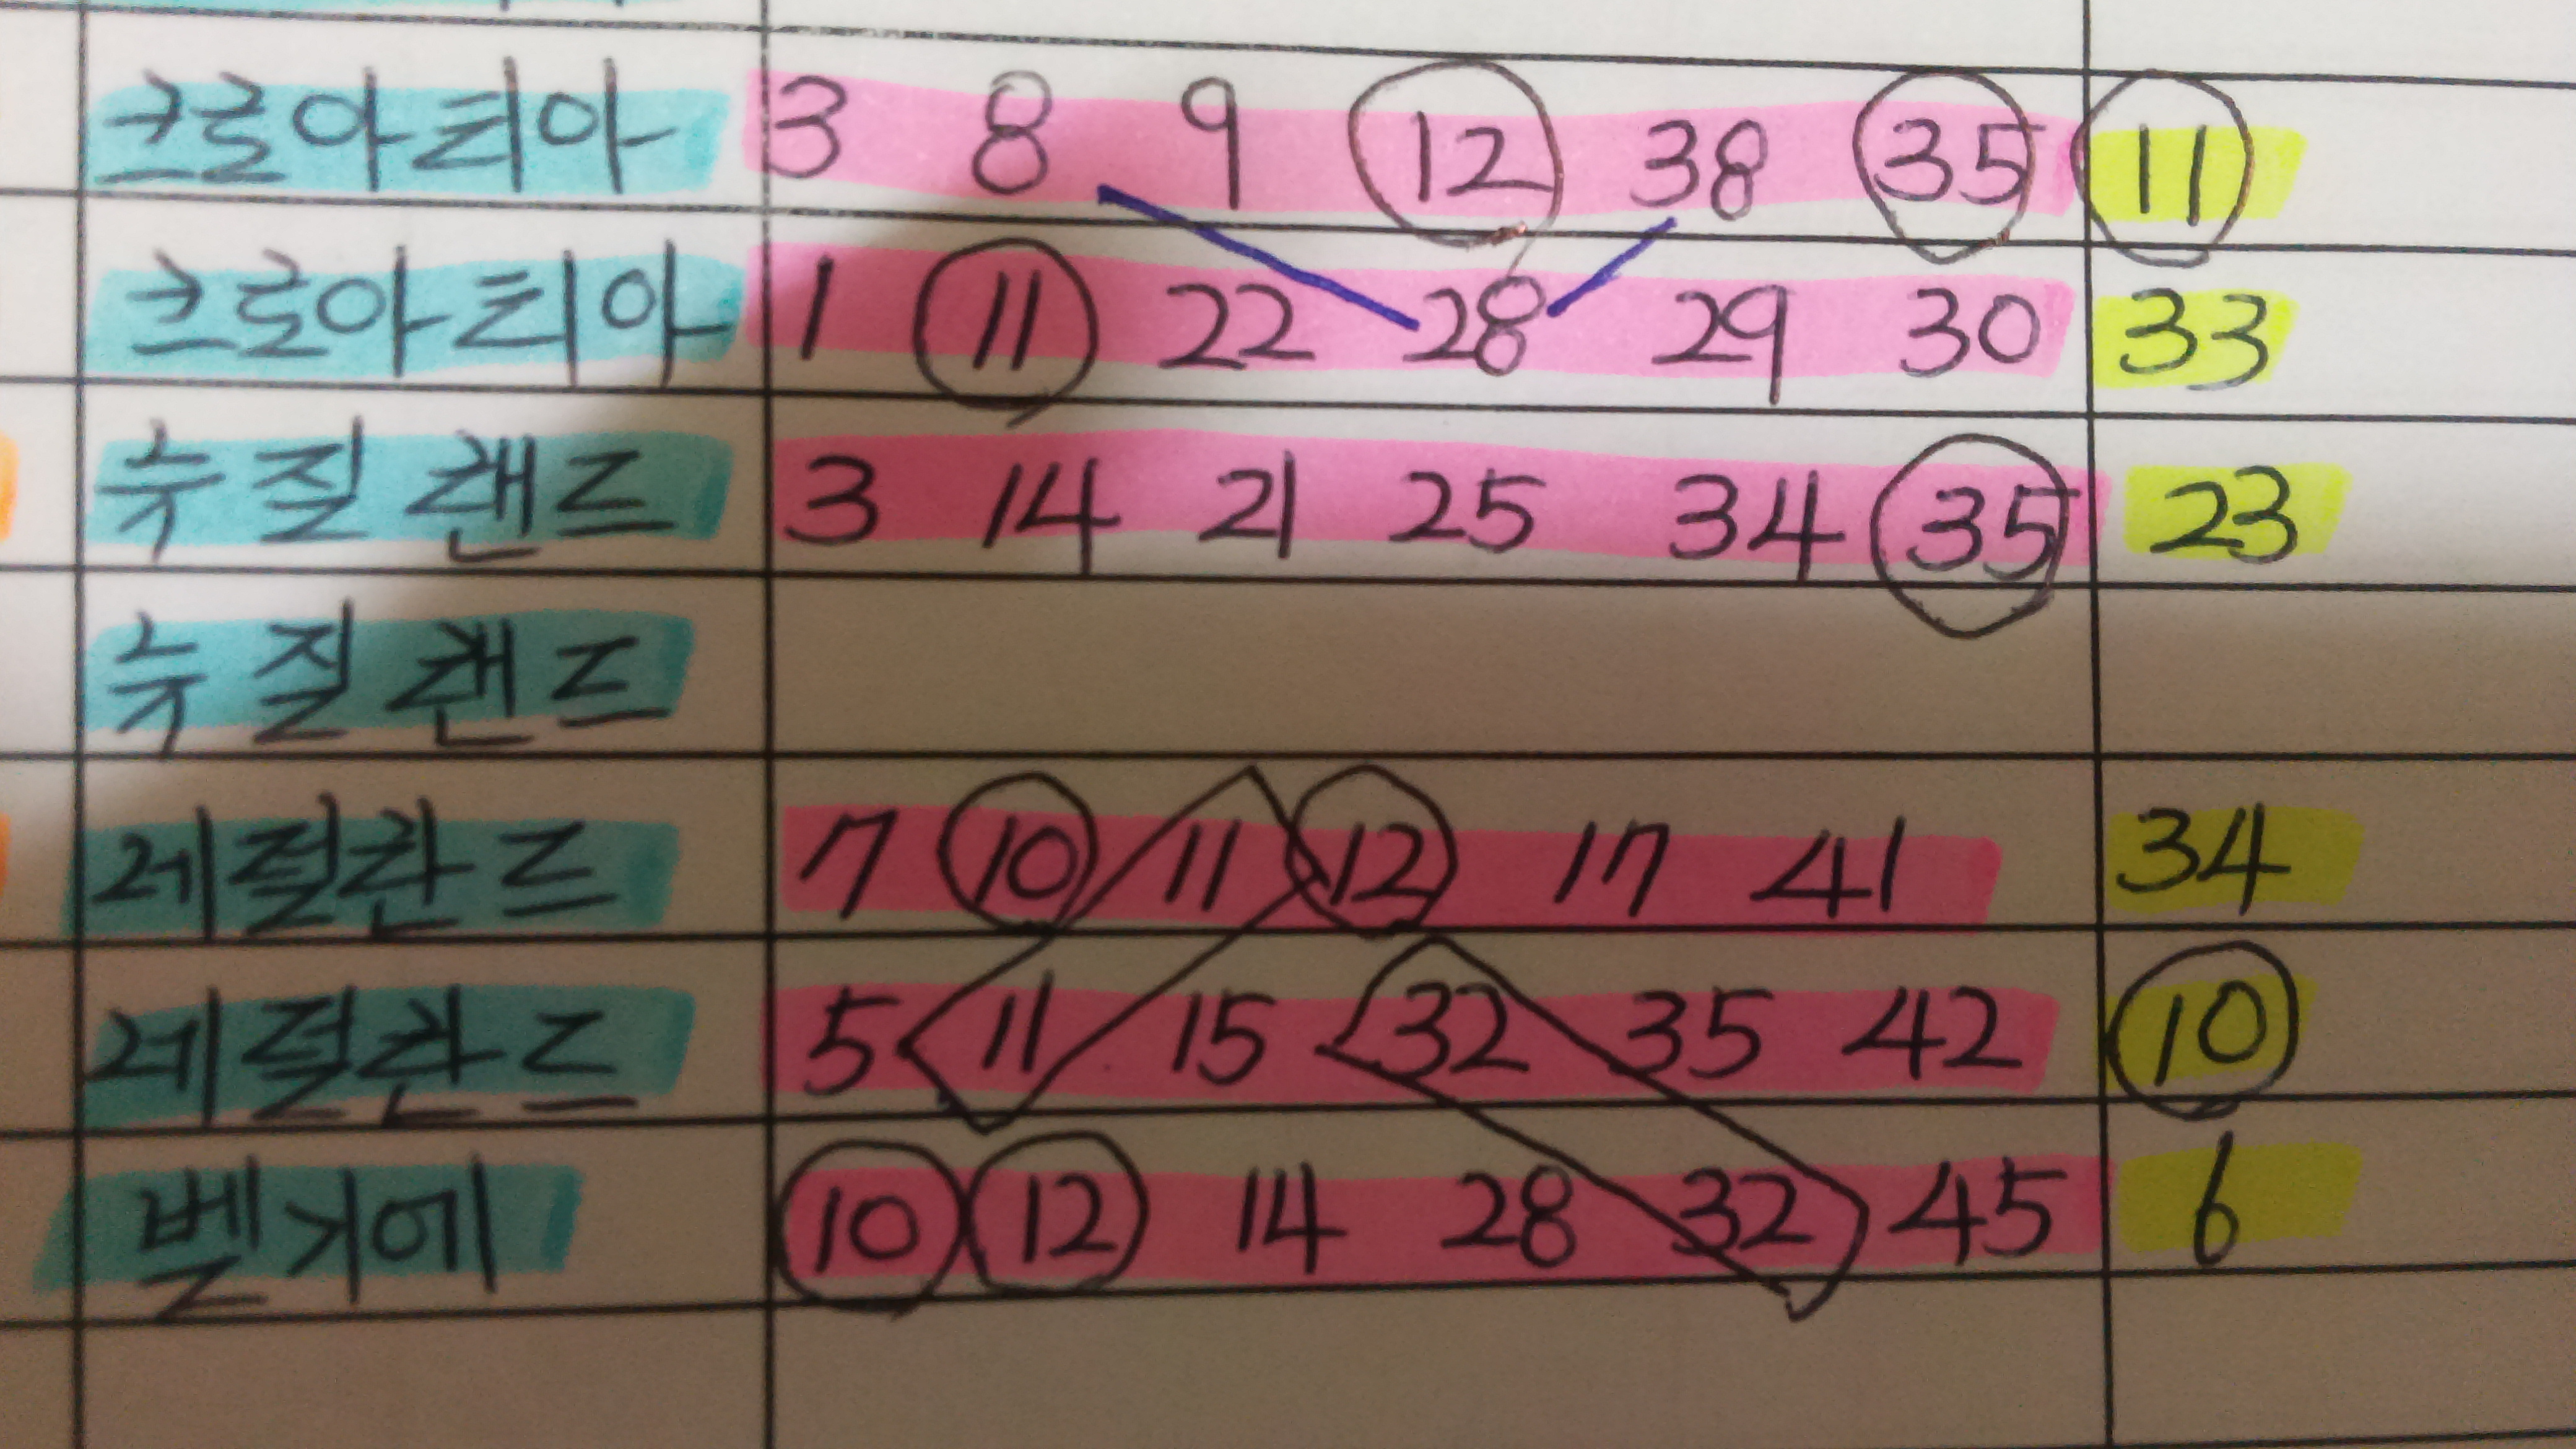 크로아티아 3 8 9 12 38 35 11
크로아티아 1 11 22 28 29 30 33
뉴질랜드 3 14 21 25 34 35 23
뉴질랜드
네덜란드 7 10 11 12 17 41 34
네덜란드 5 11 15 32 35 42 10
벨기에 10 12 14 28 32 45 6